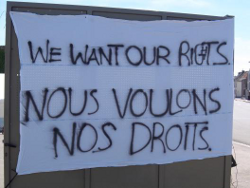 WE WANT OUR RIGTS.
NOUS VOULONS
NOS DROITS.